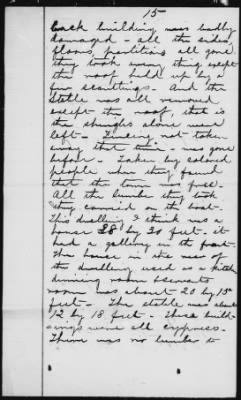 15
back building was badly
damaged - all the sides
floors, partitions all gone
they took every thing except
the roof held up by a
few scantlings. And the
stable was all removed
except the roof that is
the shingles alone were
left - Fencing not taken
away that time - was gone
before - Taken by colored
people when they found
that the town was free.
All the lumber they took
they carried on the boat.
This dwelling I think was a
house 28 by 30 feet - it
had a gallery in the front.
The house in the rear of
the dwelling used as a kitchen
dinning room & servants
room was about 20 by 15
feet - The stable was about
12 by 18 feet - These build-
ings were all cypress.
There was no lumber to